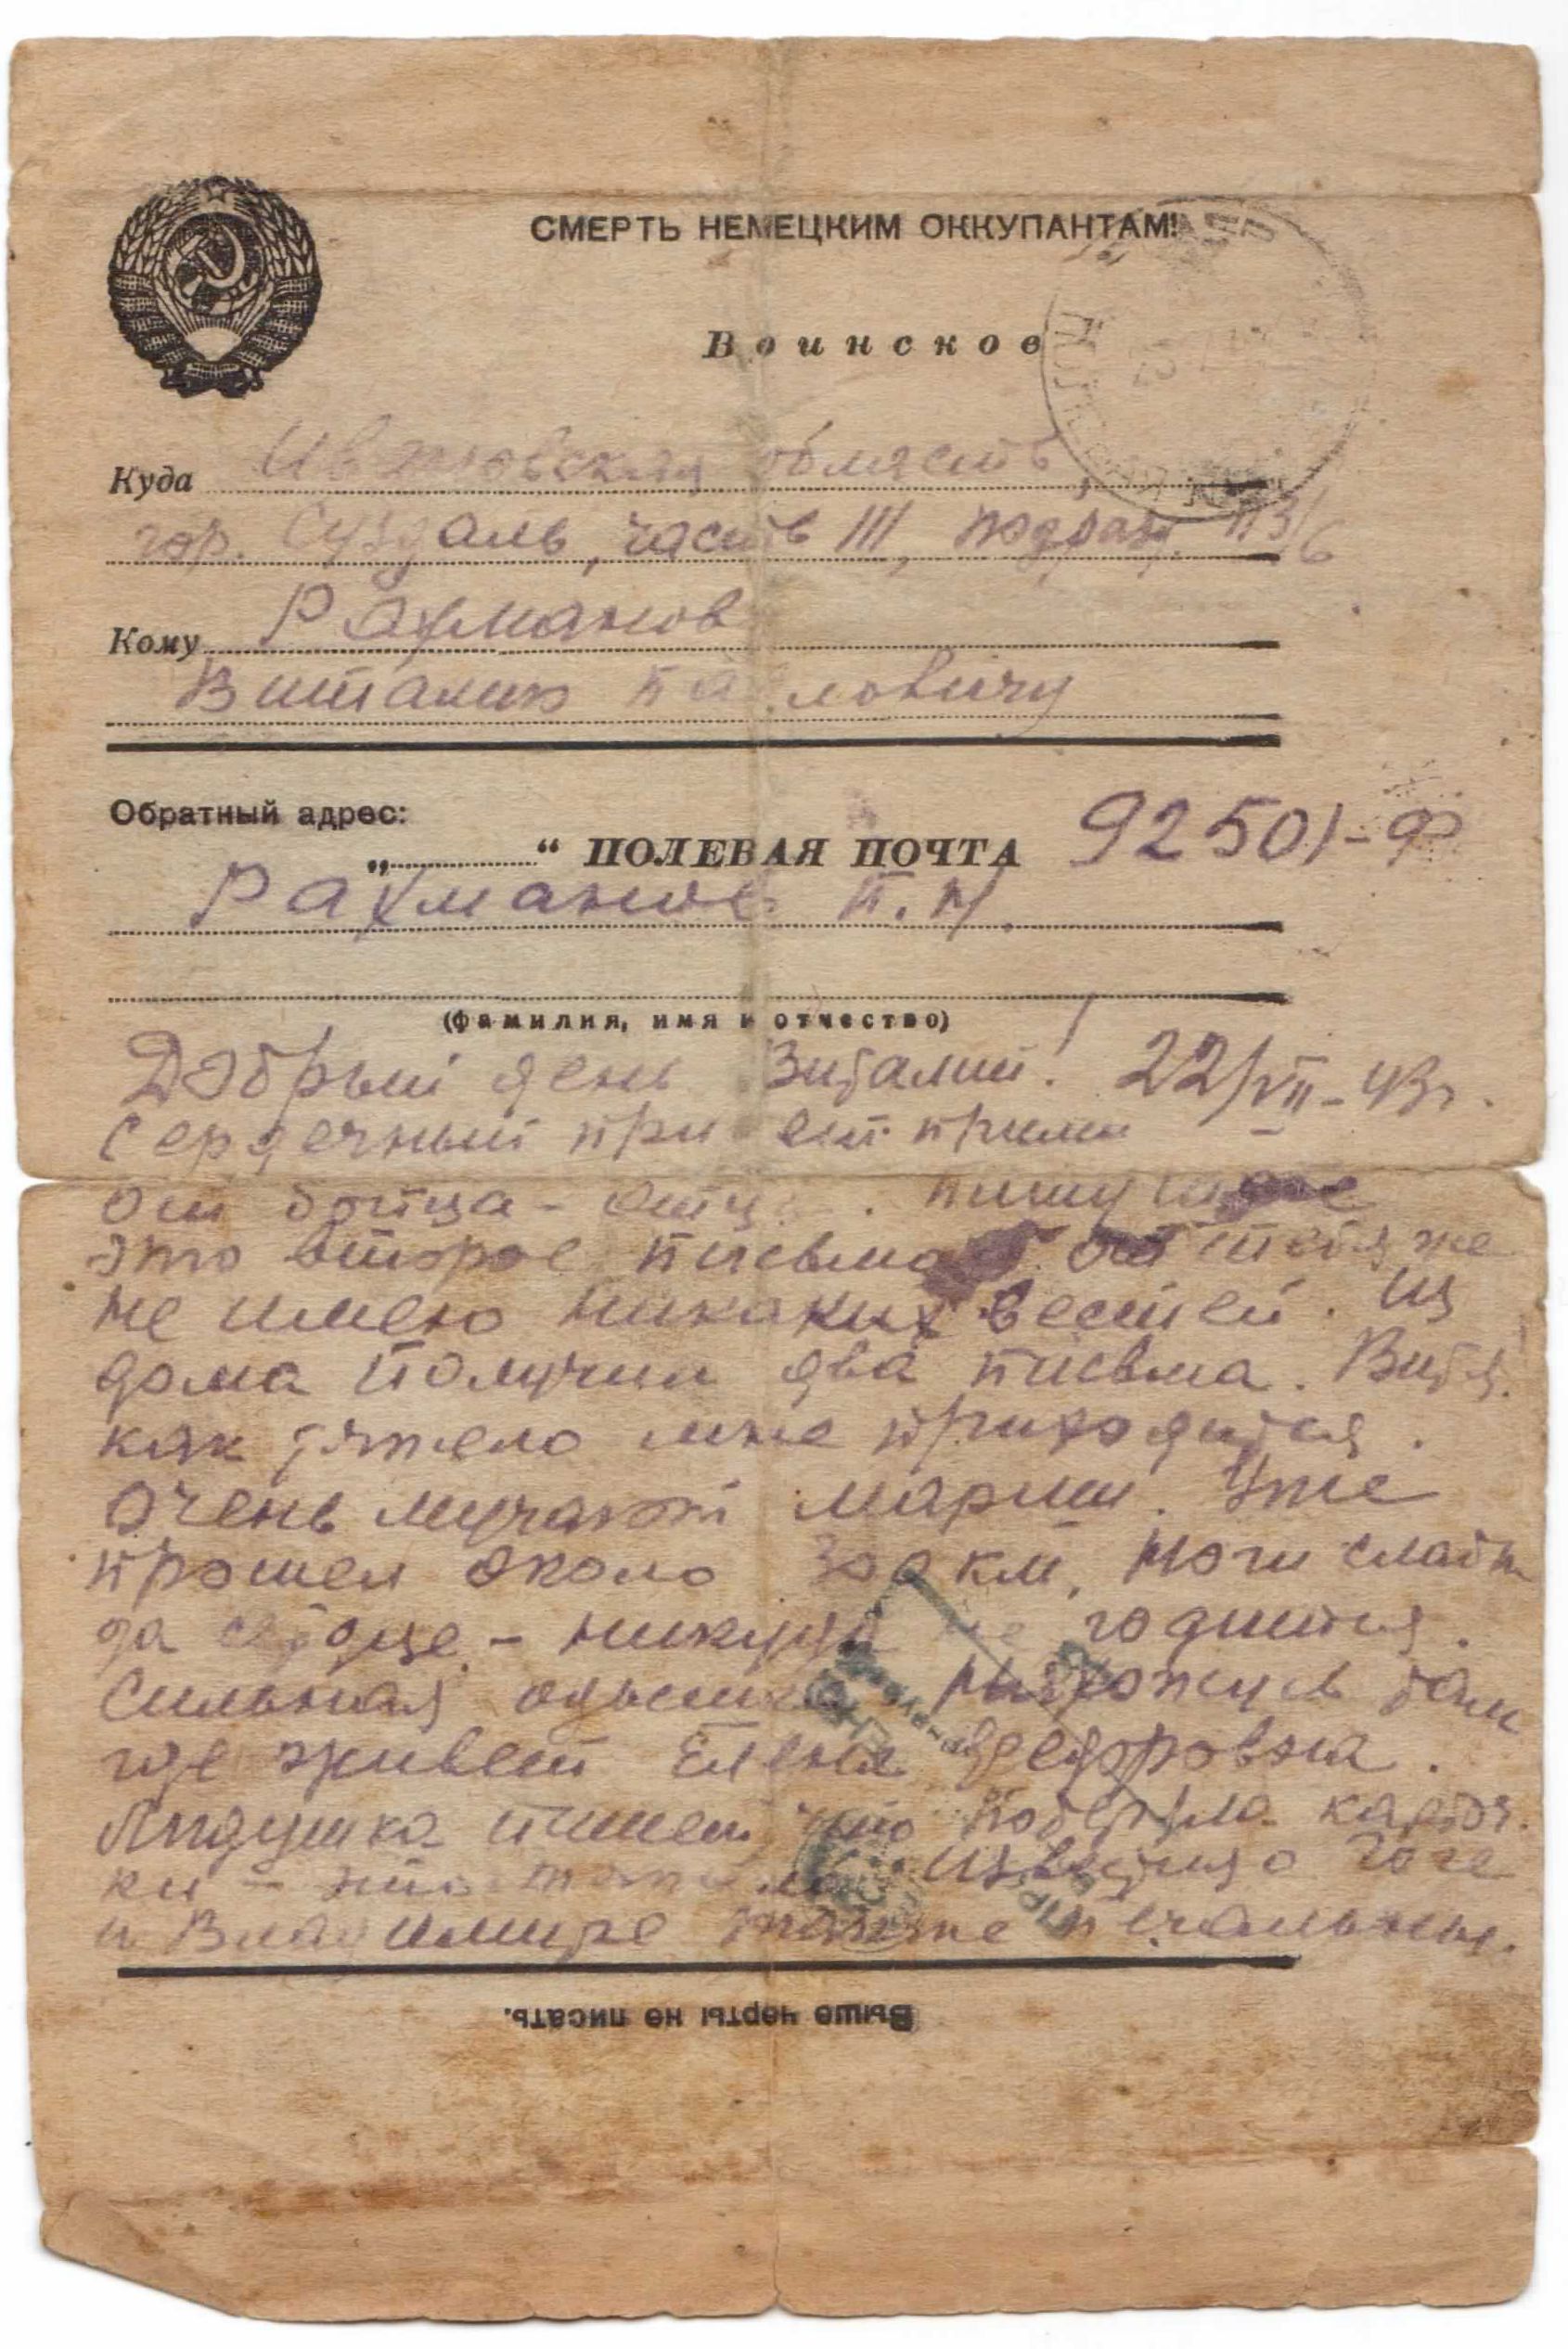 СМЕРТЬ НЕМЕЦКИМ ОККУПАНТАМ!
Воинское
Куда Ивановская область
гор. Суздаль, часть III, подразд.
Кому Рахманов
Виталию Павловичу
Обратный адрес:
„ “ ПОЛЕВАЯ ПОЧТА 92501-Ф
Рахманов П. Н.
(фамилия, имя и отчество)
Добрый день Виталий! 22/VII-43г.
Сердечный привет прими
от бойца - отца. Пишу
это второе письмо от тебя же
не имею никаких вестей. Из
дома получил два письма. Витя,
как тяжело мне приходится.
Очень мучают марши. Уже
прошел около 300 км. Ноги слабы
да сердце - никуда не годится.
Сильная одышка. Нахожусь там
где живет Елена Федоровна.
Лидушка пишет, что потеряла карточ-
ки - это Известия о Гоге
и Владимире также печальны.
Выше черты не писать.